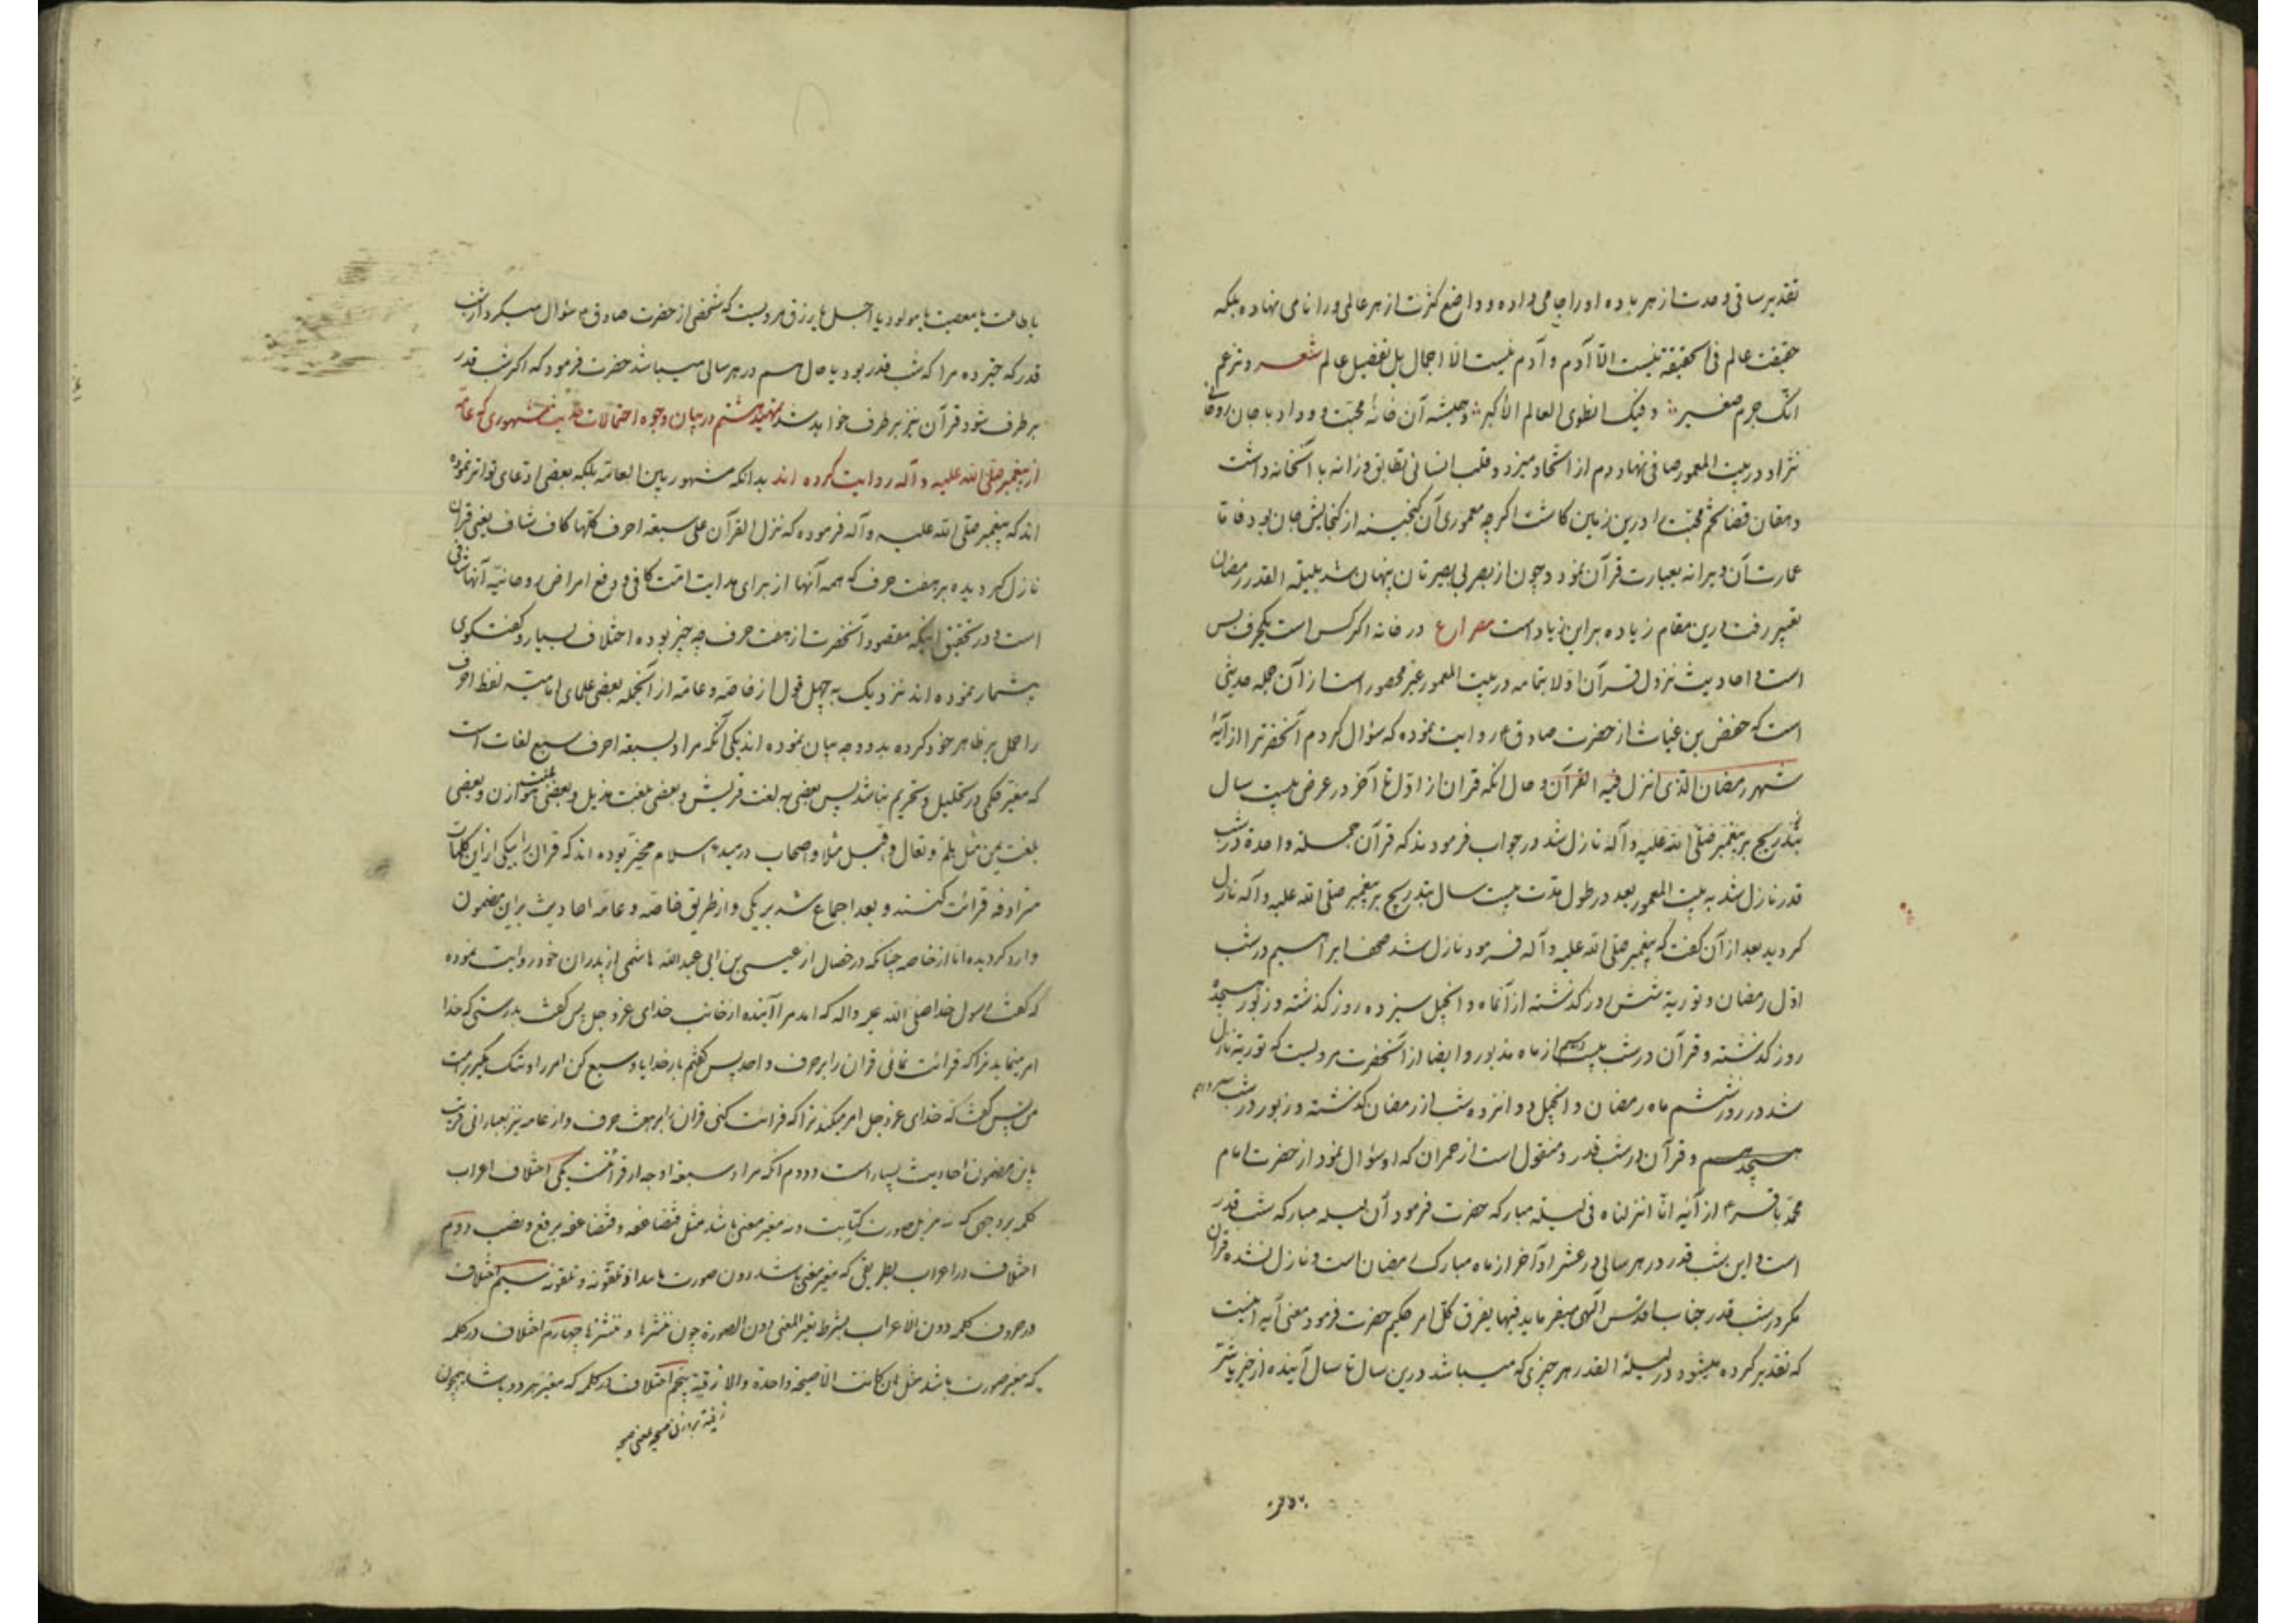 تقدیر ساقی وحدت از هر باده او را جامی داده و واضع کثرت از هر عالمی و را نامی نهاده بلکه
حقیقت عالم فی الحقیقة نیست الّا آدم و آدم نیست الّا اجمال بل تفصیل عالم شعر و تزعم
انّک جرم صغیر و فیک انطوی العالم الأکبر و همیشه آن خانهٔ محبّت و وداد با جان روحانی
نژاد در بیت المعمور صافی نهاد دم از اتّحاد میزد و قلب انسانی تطابق وزانه با آنخانه داشت
دهقان قضا تخم محبّت را درین زمین کاشت اگرچه معموری آن گنجینه از گنجایش جان بود فاتا
عمارت آن ویرانه بعبارت قرآن نمود و چون از بصر بی بصیرتان پنهان شد بلیلة القدر رمضان
تعبیر رفت درین مقام زیاده براین زیاد است مصراع در خانه اگر کس است یکحرف بس
است و احادیث نزول قرآن اوّلا بتمامه در بیت المعمور غیر محصور است از آن جمله حدیثی
است که حفص بن غیاث از حضرت صادق ع روایت نموده که سؤال کردم آنحضرترا از آیهٔ
شهر رمضان الّذی انزل فیه القرآن و حال انکه قران از اوّل تا آخر در عرض بیست سال
بتدریج بر پیغمبر صلّی الله علیه و آله نازل شد در جواب فرمودند که قرآن جملة واحدة در شب
قدر نازل شد به بیت المعمور بعد در طول مدّت بیست سال بتدریج بر پیغمبر صلی الله علیه و آله نازل
کردید بعد از آن گفت که پیغمبر صلّی الله علیه و آله فرمود نازل شد صحف ابراهیم در شب
اوّل رمضان و توریة شش روز گذشته از آنماه و انجیل سیزده روز گذشته و زبور هیجده
روز گذشته و قرآن در شب بیست سیم از ماه مذبور و ایضا از آنحضرت مرویست که توریة نازل
شد در روز ششم ماه رمضان و انجیل دوانزده شب از رمضان گذشته و زبور در شب
هیجدهم و قرآن در شب قدر و منقول است از حمران که او سؤال نمود از حضرت امام
محمّد باقر ع از آیه انّا انزلناه فی لیلة مبارکه حضرت فرمود آن لیله مبارکه شب قدر
است و این شب قدر در هر سالی در عشر اواخر از ماه مبارک رمضان است و نازل نشده قران
مگر در شب قدر جناب اقدس الهی میفرماید فیها یفرق کلّ امر حکیم حضرت فرمود معنی آیه اینست
که تقدیر کرده میشود در لیلة القدر هر چیزی که میباشد درین سال تا سال آینده از خیر یا شر
یا طاعت یا معصیت یا مولود یا اجل یا رزق مرویست که شخصی از حضرت صادق ع سؤال میکرد از شب
قدر که خبر ده مرا که شب قدر بود یا حال هم در هر سالی میباشد حضرت فرمود که اگر شب قدر
بر طرف شود قرآن نیز بر طرف خواهد شد تمهید هشتم در بیان وجوه احتمالات حدیث مشهوری که عامّه
از پیغمبر صلّی الله علیه و آله روایت کرده اند بدانکه مشهور بین العامّه بلکه بعضی ادّعای تواتر نموده
اند که پیغمبر صلّی الله علیه و آله فرموده که نزل القرآن علی سبعة احرف کلّها کاف شاف یعنی قران
نازل کردیده بر هفت حرف که همه آنها از برای هدایت امّت کافی و در رفع امراض روحانیّه آنها شافی
است و در تحقیق اینکه مقصود آنحضرت از هفت حرف چه چیز بوده اختلاف بسیار و گفتگوی
بیشمار نموده اند نزدیک به چهل قول از خاصّه و عامّه از آنجمله بعضی علمای امامیّه لفظ احرف
را حمل بر ظاهر خود کرده بدو وجه بیان نموده اند یکی آنکه مراد بسبعة احرف سبع لغات است
که مغیّر حکمی در تحلیل و تحریم نباشد پس بعضی به لغت قریش و بعضی بلغت هذیل و بعضی بلغت هوازن و بعضی
بلغت یمن مثل هلم و تعال و اقبل مثلا و اصحاب در مبدء اسلام مخیّر بوده اند که قران را بیکی از این کلمات
مترادفه قرائت کنند و بعد اجماع شد بر یکی و از طریق خاصّه و عامّه احادیث براین مضمون
وارد کردیده امّا از خاصه چنانکه در خصال از عیسی بن ابی عبدالله هاشمی از پدران خود روایت نموده
که گفت رسول خدا صلی الله علیه و اله که امد مرا آینده از جانب خدای عزّ و جل پس گفت بدرستی که خدا
امر مینماید ترا که قرائت نمائی قران را بر حرف واحد پس گفتم بار خدایا وسیع کن امر را و تنک مگیر بر امت
من پس گفت که خدای عزّ و جل امر میکند ترا که قرائت کنی قران را بر هفت حرف و از عامه نیز بعباراتی قریب
باین مضمون احادیث بسیار است و دوم آنکه مراد سبعة اوجه از قرائت است یکی اختلاف اعراب
کلمه بر وجهی که نه مزیل صورت کتابت و نه مغیّر معنی باشد مثل فیضاعفه و فیضاعفه برفع و نصب دوم
اختلاف در اعراب بطریقی که مغیّر معنی باشد دون صورت مانند اذ تلقّونه و تلقونه سیم اختلاف
در حروف کلمه دون الاعراب بشرط تغیر المعنی دون الصورة چون ننشرها و ننشزها چهارم اختلاف در کلمه
که مغیّر صورت باشد مثل ان کانت الّا صیحة واحدة و الّا زقیة پنجم اختلاف در کلمه که مغیّر هر دو باشد همچون
زقیة بر وزن صیحه بمعنی صیحه